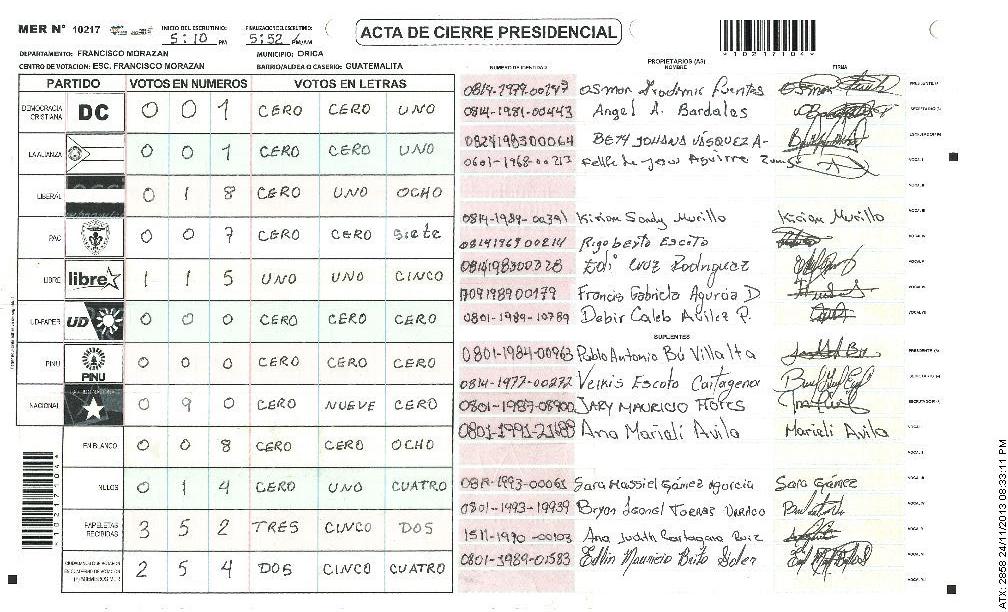 MER Nº 10217
INICIO DEL ESCRUTINIO: 5:10 PM
FINALIZACION DEL ESCRUTINIO: 5:52 PM/AM
ACTA DE CIERRE PRESIDENCIAL
*10217104*
DEPARTAMENTO: FRANCISCO MORAZAN
MUNICIPIO: ORICA
CENTRO DE VOTACION: ESC. FRANCISCO MORAZAN
BARRIO/ALDEA O CASERIO: GUATEMALITA
PARTIDO VOTOS EN NUMEROS VOTOS EN LETRAS
DEMOCRACIA CRISTIANA DC 0 0 1 CERO CERO UNO
LA ALIANZA 0 0 1 CERO CERO UNO
LIBERAL 0 1 8 CERO UNO OCHO
PAC 0 0 7 CERO CERO siete
LIBRE libre 1 1 5 UNO UNO CINCO
UD-FAPER UD 0 0 0 CERO CERO CERO
PINU PINU 0 0 0 CERO CERO CERO
NACIONAL 0 9 0 CERO NUEVE CERO
EN BLANCO 0 0 8 CERO CERO OCHO
NULOS 0 1 4 CERO UNO CUATRO
PAPELETAS RECIBIDAS 3 5 2 TRES CINCO DOS
2 5 4 DOS CINCO CUATRO
*10217104*
NUMERO DE IDENTIDAD
PROPIETARIOS (AS)
NOMBRE
FIRMA
Osman Fuentes PRESIDENTE
0814-1981-00443 Angel A. Bardales SECRETARIO
0824198300064 BETY JOHANA VÁSQUEZ A- ESCRUTADOR
0601-1968-00213 Felipe de Jesus Aguirre VOCAL I
VOCAL II
0814-1984-00391 Kirian Sandy Murillo Kirian Murillo VOCAL III
0814196900214 Rigoberto Escoto VOCAL IV
0814198300328 Edi Cruz Rodriguez VOCAL V
1709198900179 Francis Gabriela Agurcia D VOCAL VI
0801-1989-10789 Debir Caleb Avilez P. VOCAL VII
SUPLENTES
0801-1984-00963 Pablo Antonio Bú Villalta PRESIDENTE
0814-1977-00272 Escoto Cartagena SECRETARIO
0801-1987-08900 JARY MAURICIO FLORES ESCRUTADOR
0801-1991-21688 Ana Marieli Avila Marieli Avila VOCAL I
VOCAL II
Sara Massiel Gámez Agurcia Sara Gámez VOCAL III
0801-1993-19939 Bryan Leonel TORRES URRACO VOCAL IV
1511-1990-00103 Ana Judith Ruiz VOCAL V
0801-1989-01583 Edvin Mauricio Brito Soler VOCAL VI
VOCAL VII
ATX: 2858 24/11/2013 08:33:11 PM